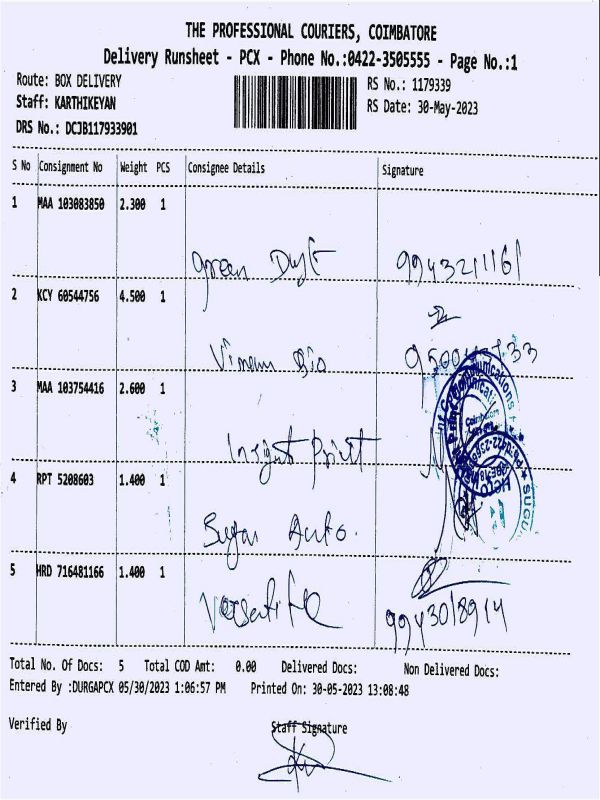 THE PROFESSIONAL COURIERS, COIMBATORE
Delivery Runsheet - PCX - Phone No.:0422-3505555 - Page No.:1
Route: BOX DELIVERY
Staff: KARTHIKEYAN
DRS No.: DCJB117933901
RS No.: 1179339
RS Date: 30-May-2023
S No Consignment No Weight PCS Consignee Details Signature
1 MAA 103083850 2.300 1
Green Dust 9943211161
2 KCY 60544756 4.500 1
Bio
3 MAA 103754416 2.600 1
Insight Print
4 RPT 5208603 1.400 1
Auto.
5 HRD 716481166 1.400 1
Versatile 9943018914
Total No. Of Docs: 5 Total COD Amt: 0.00 Delivered Docs: Non Delivered Docs:
Entered By :DURGAPCX 05/30/2023 1:06:57 PM Printed On: 30-05-2023 13:08:48
Verified By Staff Signature